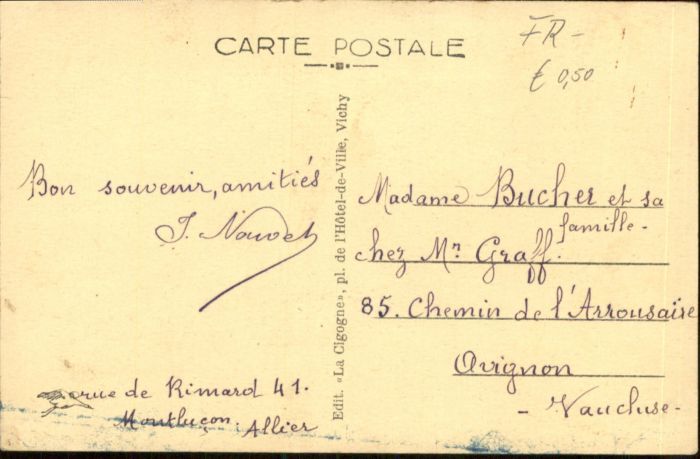 CARTE POSTALE
FR -
€ 0,50
Bon souvenir, amitiés
Edit. «La Cigogne», pl. de l'Hôtel-de-Ville, Vichy
Madame Bucher et sa
famille -
chez Mr. Graff.
85. Chemin de l'Arrousaire
Avignon
- Vaucluse -
rue de Rimard 41.
Montluçon. Allier